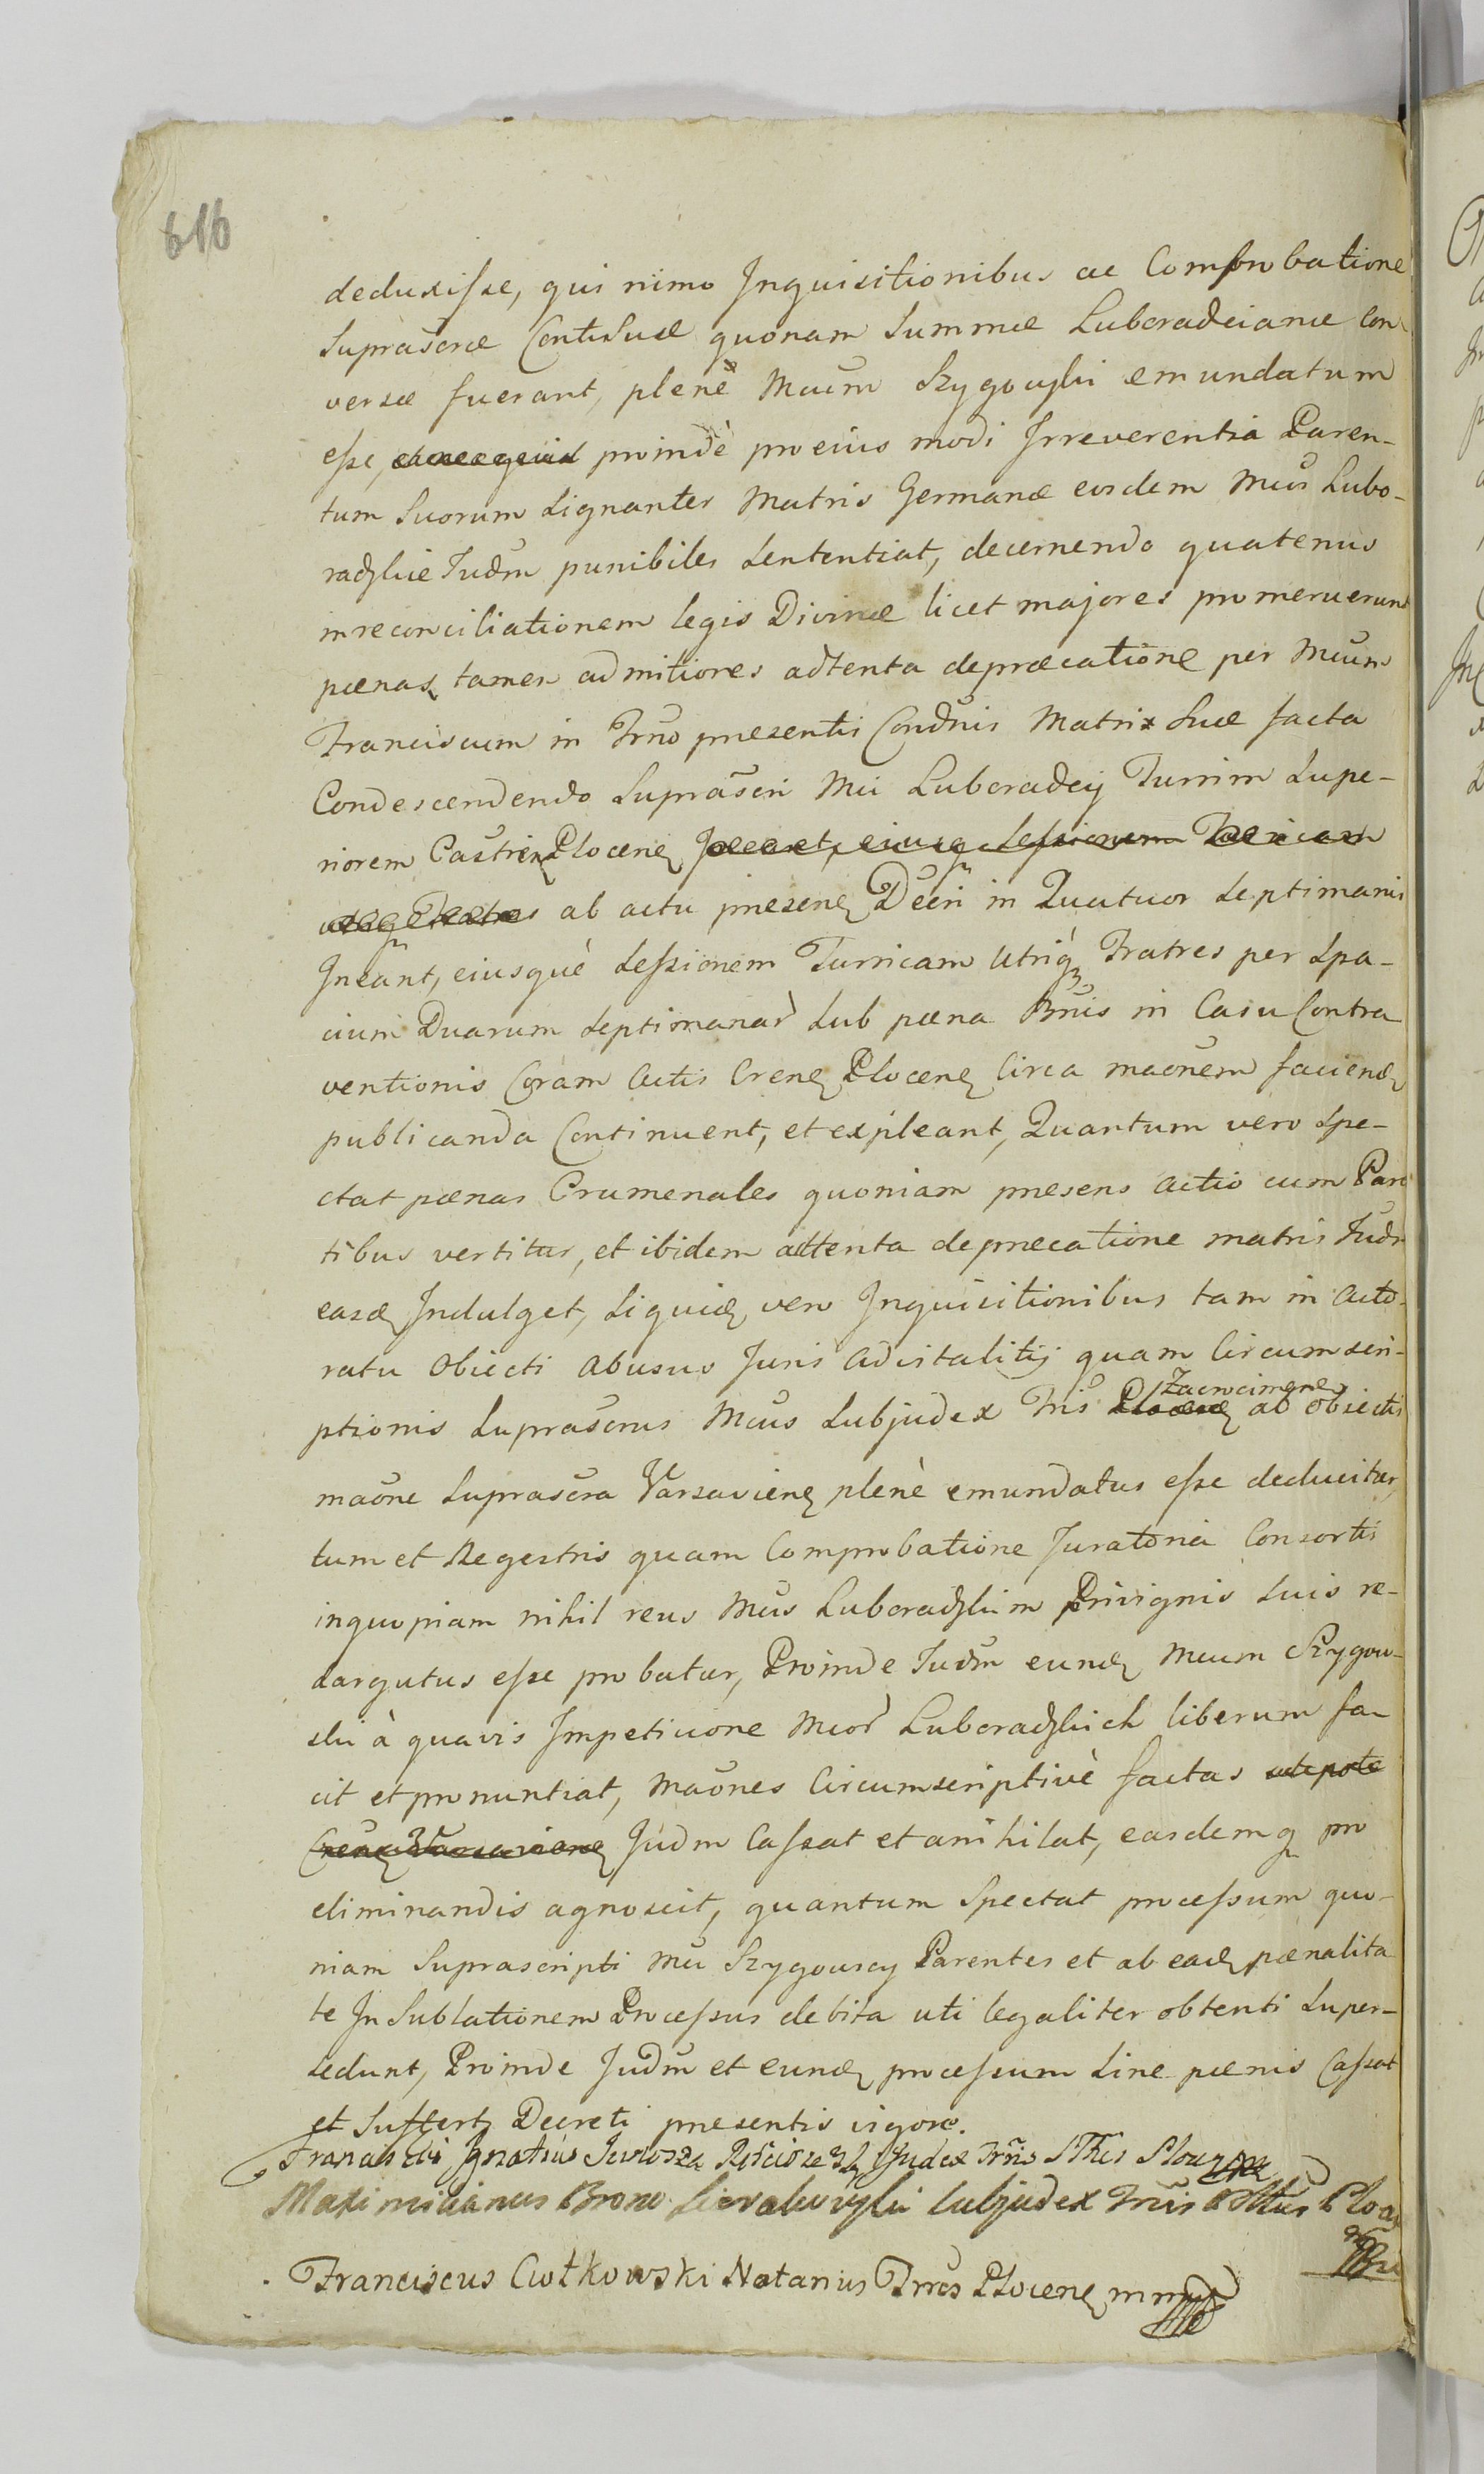 616
deduxisse, qui nimo Inquisitionibus ac Comprobatione
Suprascræ Contis Suæ quonam Summæ Luboradcianæ Con-
versæ fuerant, plenè Mcum Szygowski emundatum
esse, proindè pro eius modi Irreverentia Paren-
tum Suorum Signanter Matris Germanæ eosdem Mcos Lubo-
radzkie Iudm punibiles Sententiat, decernendo quatenus
in reconciliationem legis Divinæ licet majores promeruerunt
pænas tamen ad mitiores adtenta deprecatione per Mcum
Franciscum in Trno presentis Condnis Matris Suæ facta
Condescendendo Suprascri Mci Luboradcy Turrim Supe-
riorem Castren Plocen Ineant, eiusq Sessionem Turricam
ab actu presen Decri in Quatuor Septimanis
Ineant, eiusquè Sessionem Turricam Utriq Fratres per Spa-
cium Duarum Septimanar Sub pæna Bnis in Casu Contra
ventionis Coram Actis Cren Plocen Circa maonem faciend
publicanda Continuent, et expleant, Quantum vero Spe-
ctat pænas Crumenales quoniam presens Actio cum Paren
tibus vertitur, et ibidem attenta deprecatione matris Iudm
easd Indulget, Siquid vero Inquisitionibus tam in Acto-
ratu Obiecti Abusus Juris Advitalitij quam Circumscri-
ptionis Suprascrus Mcus Subjudex Tris Plocen Zacrocimen ab obiectis
maone Suprascra Varsavien plenè emundatus esse deducitur,
tum et Regestris quam Comprobatione Juratoria Consortis
in quopiam nihil reus Mcus Luboradzkim Privignis Suis re-
dargutus esse probatur, Proinde Iudm eund Mcum Szygow-
ski à quavis Impeticione Mcor Luboradzkich liberum fa-
cit et pronuntiat, maones Circumscriptivè factas utpote
Cren Varsavien Judm Cassat et anihilat, easdemq pro
eliminandis agnoscit, quantum Spectat processum quo-
niam Suprascripti Mci Szygowscy Parentes et ab ead pænalita
te In Sublationem Processus debita uti legaliter obtenti Super-
sedunt, Proinde Judm et eund processum Sine pænis Cassat
et Suffert Decreti presentis vigore.
Franciscus Ignatius Judex Trris
Maximilianus Subjudex Trris
Franciscus Ciołkowski Notarius Trris Plocen mmp